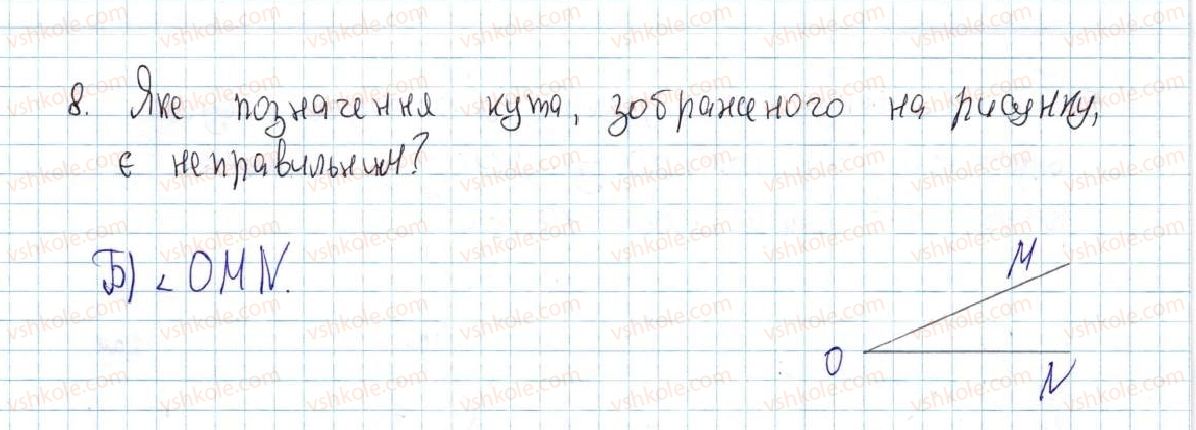 8. Яке позначення кута, зображеного на рисунку,
є неправильним?
Б) ∠OMN.
M
O
N
vshkole.com